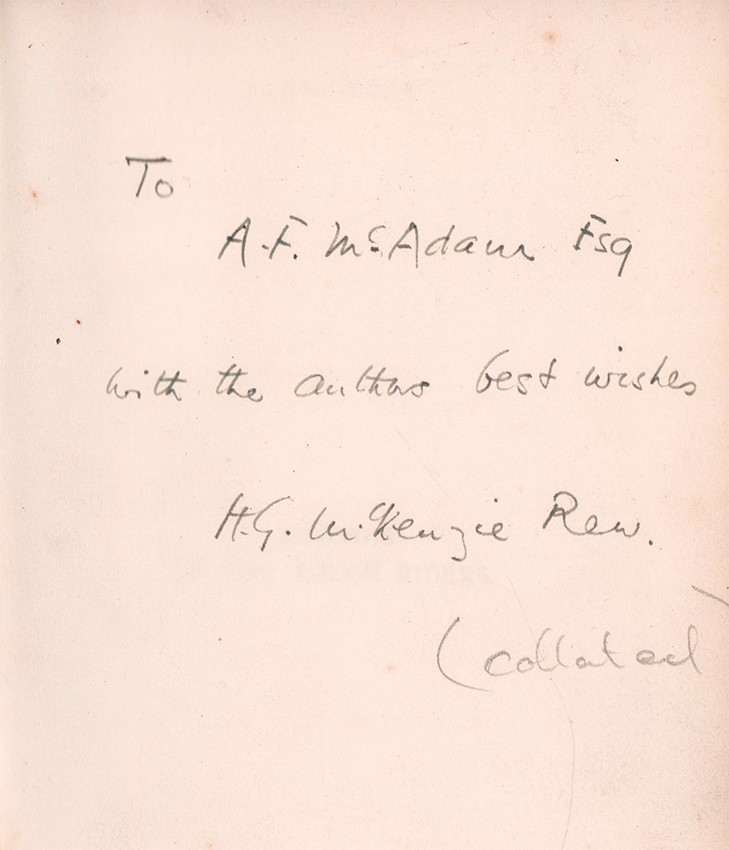 To
A.F. McAdam Esq
with the authors best wishes
H.G. McKenzie Rew.
(collated)